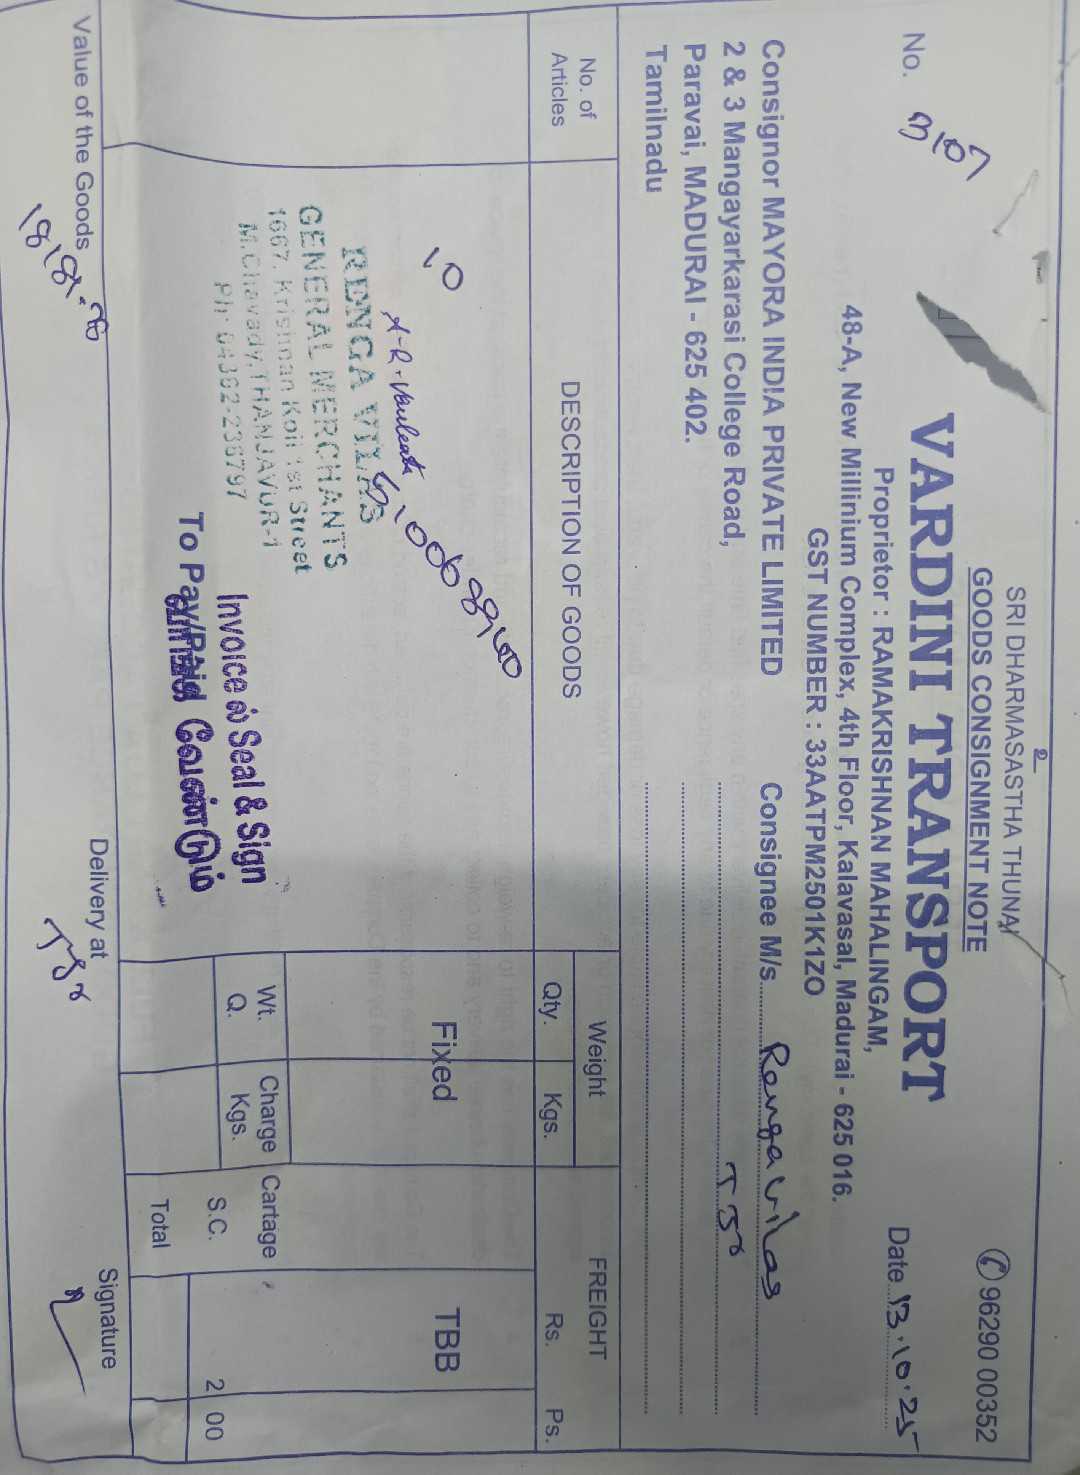 SRI DHARMASASTHA THUNAI
GOODS CONSIGNMENT NOTE
✆ 96290 00352
No. 3107
VARDINI TRANSPORT
Date 13.10.25
Proprietor : RAMAKRISHNAN MAHALINGAM,
48-A, New Millinium Complex, 4th Floor, Kalavasal, Madurai - 625 016.
GST NUMBER : 33AATPM2501K1ZO
Consignor MAYORA INDIA PRIVATE LIMITED
2 & 3 Mangayarkarasi College Road,
Paravai, MADURAI - 625 402.
Tamilnadu
Consignee M/s. Renga vilas
No. of Articles
DESCRIPTION OF GOODS
Weight
Qty.
Kgs.
FREIGHT
Rs.
Ps.
10
Fixed
TBB
RENGA VILAS
GENERAL MERCHANTS
1667, Krishnan Koil 1st Street
M.Chavady, THANJAVUR-1
Ph: 04362-236797
Invoice ல் Seal & Sign
வாங்கி வேண்டும்
To Pay/Paid
Wt. Q.
Charge Kgs.
Cartage
S.C.
2 00
Total
Value of the Goods
Delivery at
Signature